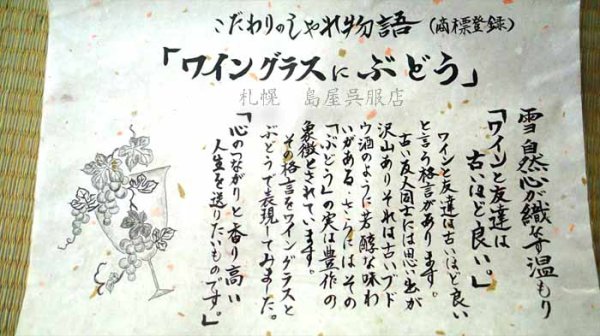 こだわりのしゃれ物語（商標登録）
「ワイングラスにぶどう」
札幌 島屋呉服店
雪自然心が織なす温もり
「ワインと友達は
古いほど良い。」
ワインと友達は古いほど良い
と言う格言があります。
古い友人同士には思い出が
沢山ありそれは古いブド
ウ酒のように芳醇な味わ
いがある、さらにはその
「ぶどう」の実は豊作の
象徴とされています。
その格言をワイングラスと
ぶどうで表現してみました。
「心のつながりと香り高い
人生を送りたいものです。」